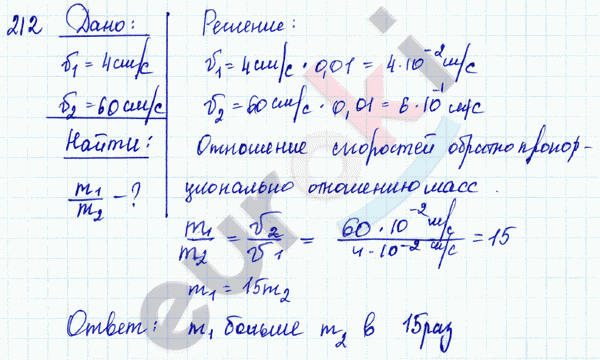 212 Дано:
v₁ = 4 см/с
v₂ = 60 см/с
Найти:
m₁/m₂ - ?
Решение:
v₁ = 4 см/с · 0,01 = 4·10⁻² м/с
v₂ = 60 см/с · 0,01 = 6·10⁻¹ см/с
Отношение скоростей обратно пропор-
ционально отношению масс.
m₁/m₂ = v₂/v₁ = 60·10⁻² м/с / 4·10⁻² м/с = 15
m₁ = 15m₂
Ответ: m₁ больше m₂ в 15 раз
euroki